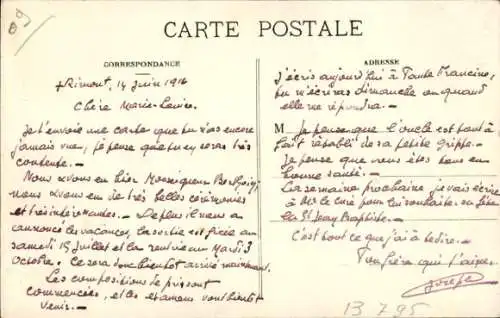 09
CARTE POSTALE
CORRESPONDANCE
ADRESSE
+ Rimont, 14 Juin 1916
Chère Marie-Louise.
Je t'envoie une carte que tu n'as encore
jamais vue, je pense que tu en seras très
contente. -
Nous avons eu hier Monseigneur
nous avons eu de très belles cérémonies
et très intéressantes. - De plus il nous a
annoncé les vacances, la sortie est fixée au
samedi 15 Juillet et la rentrée au Mardi 3
Octobre. Ce sera donc bientôt arrivé maintenant.
Les compositions de prix sont
commencées, et les examens vont bientôt
venir. -
J'écris aujourd'hui à Tante Francine,
tu m'écriras dimanche ou quand
elle me répondra. -
M Je pense que l'oncle est tout à
fait rétabli de sa petite grippe.
Je pense que vous êtes tous en
bonne santé. -
La semaine prochaine je vais écrire
à Mr le curé pour lui souhaiter sa fête
la St Jean Baptiste. -
C'est tout ce que j'ai à te dire. -
Ton frère qui t'aime.
Joseph
B 7 95